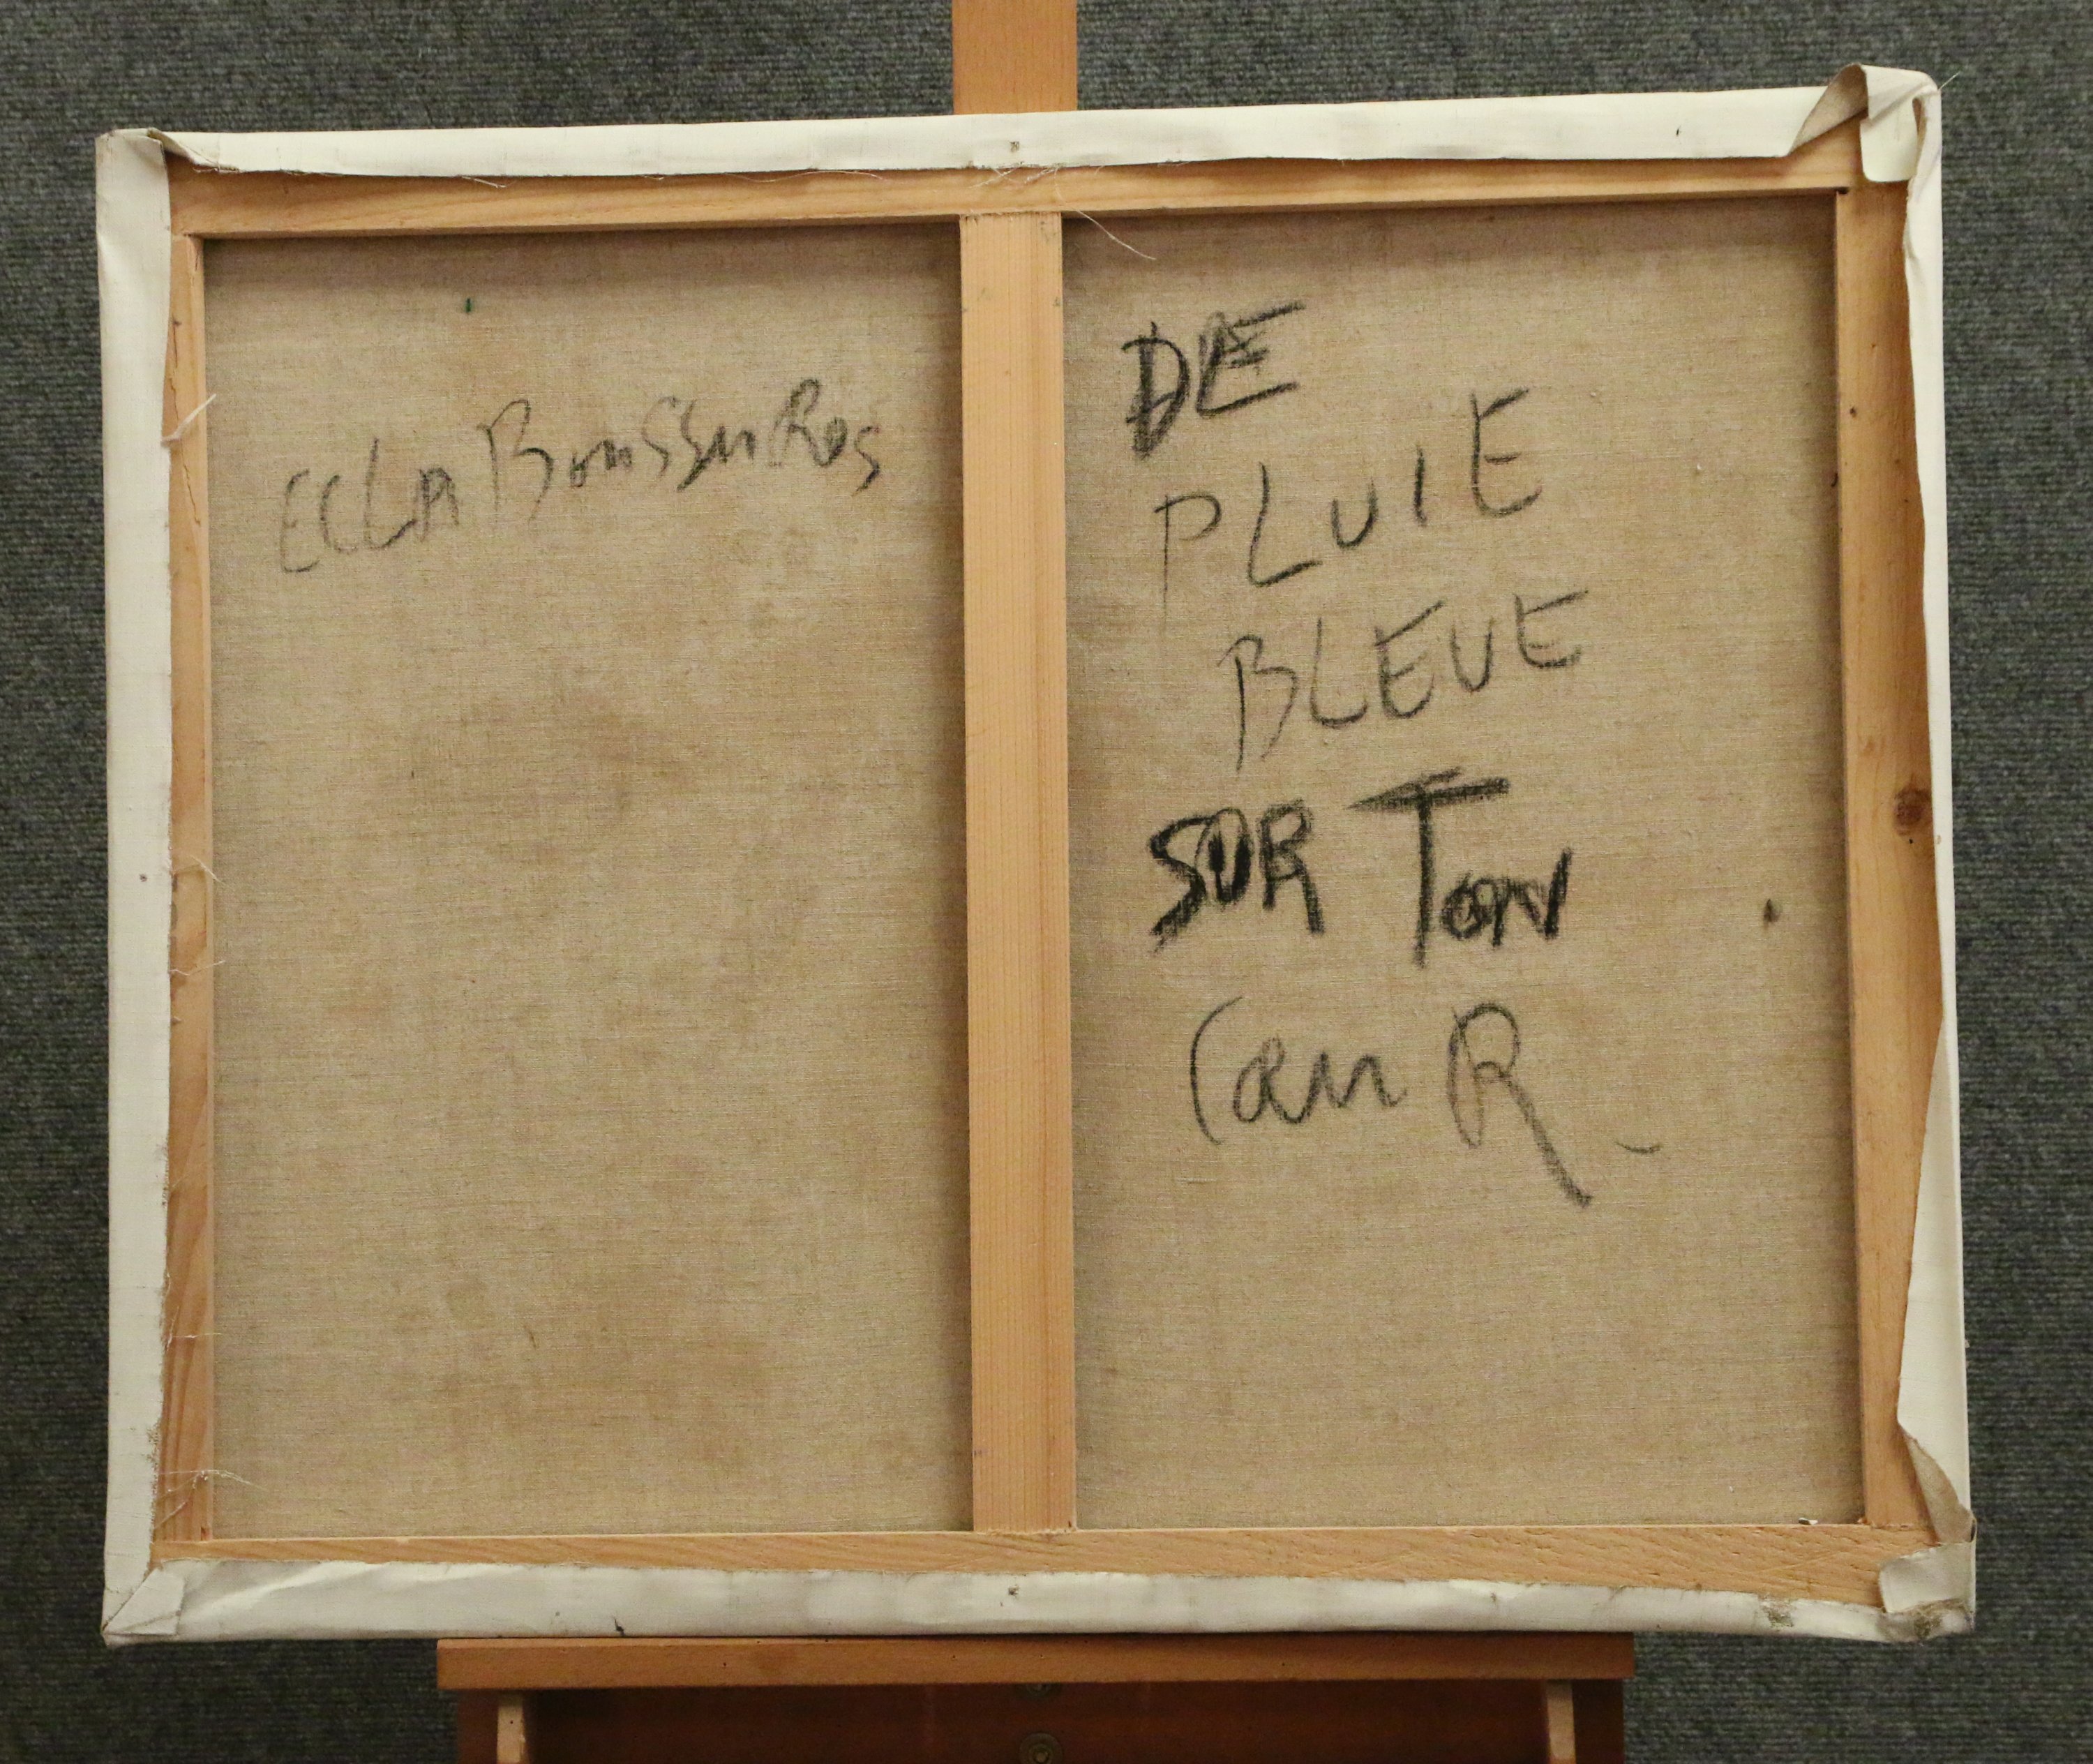 ECLABoussuRes
DE
PLUIE
BLEUE
SUR TON
CœuR_